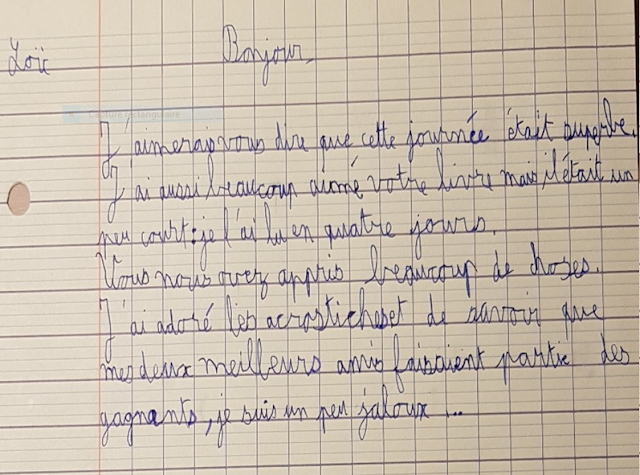 Loïc
Bonjour,
Capture rectangulaire
J'aimerais vous dire que cette journée était superbe.
J'ai aussi beaucoup aimé votre livre mais il était un
peu court : je l'ai lu en quatre jours.
Vous nous avez appris beaucoup de choses.
J'ai adoré les acrostiches et de savoir que
mes deux meilleurs amis faisaient partie des
gagnants, je suis un peu jaloux...